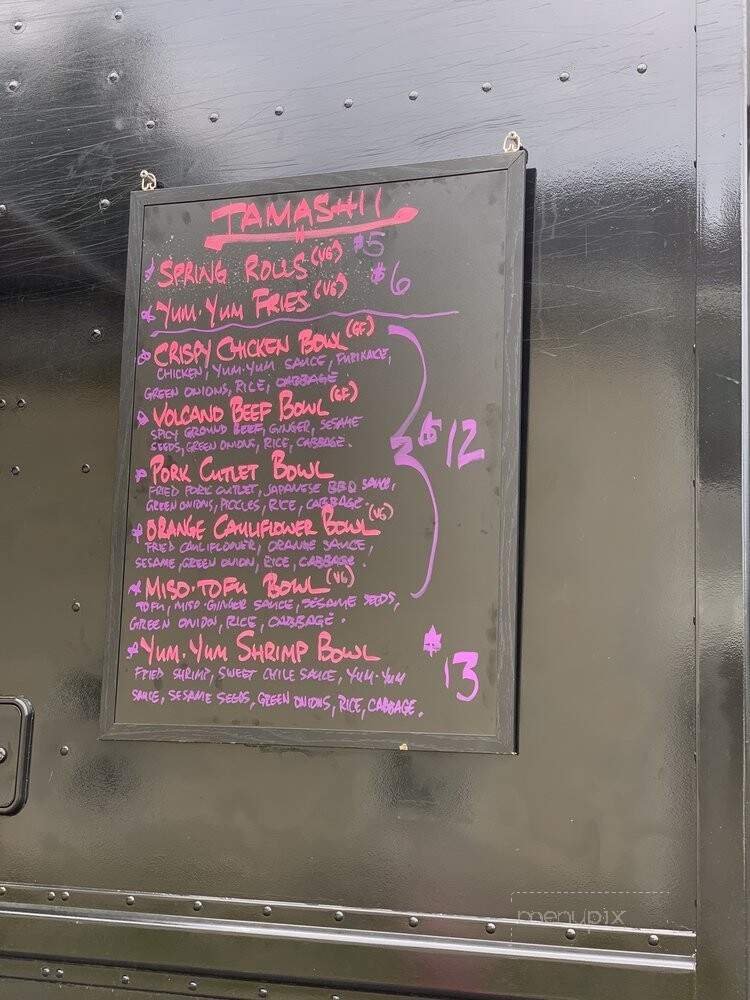 TAMASHII
SPRING ROLLS (VG) $5
YUM·YUM FRIES (VG) $6
CRISPY CHICKEN BOWL (GF)
CHICKEN, YUM·YUM SAUCE, FURIKAKE,
GREEN ONIONS, RICE, CABBAGE.
VOLCANO BEEF BOWL (GF)
SPICY GROUND BEEF, GINGER, SESAME
SEEDS, GREEN ONIONS, RICE, CABBAGE.
$12
PORK CUTLET BOWL
FRIED PORK CUTLET, JAPANESE BBQ SAUCE,
GREEN ONIONS, PICKLES, RICE, CABBAGE.
ORANGE CAULIFLOWER BOWL (VG)
FRIED CAULIFLOWER, ORANGE SAUCE,
SESAME, GREEN ONION, RICE, CABBAGE.
MISO·TOFU BOWL (VG)
TOFU, MISO·GINGER SAUCE, SESAME SEEDS,
GREEN ONION, RICE, CABBAGE.
YUM·YUM SHRIMP BOWL $13
FRIED SHRIMP, SWEET CHILE SAUCE, YUM·YUM
SAUCE, SESAME SEEDS, GREEN ONIONS, RICE, CABBAGE.
menupix